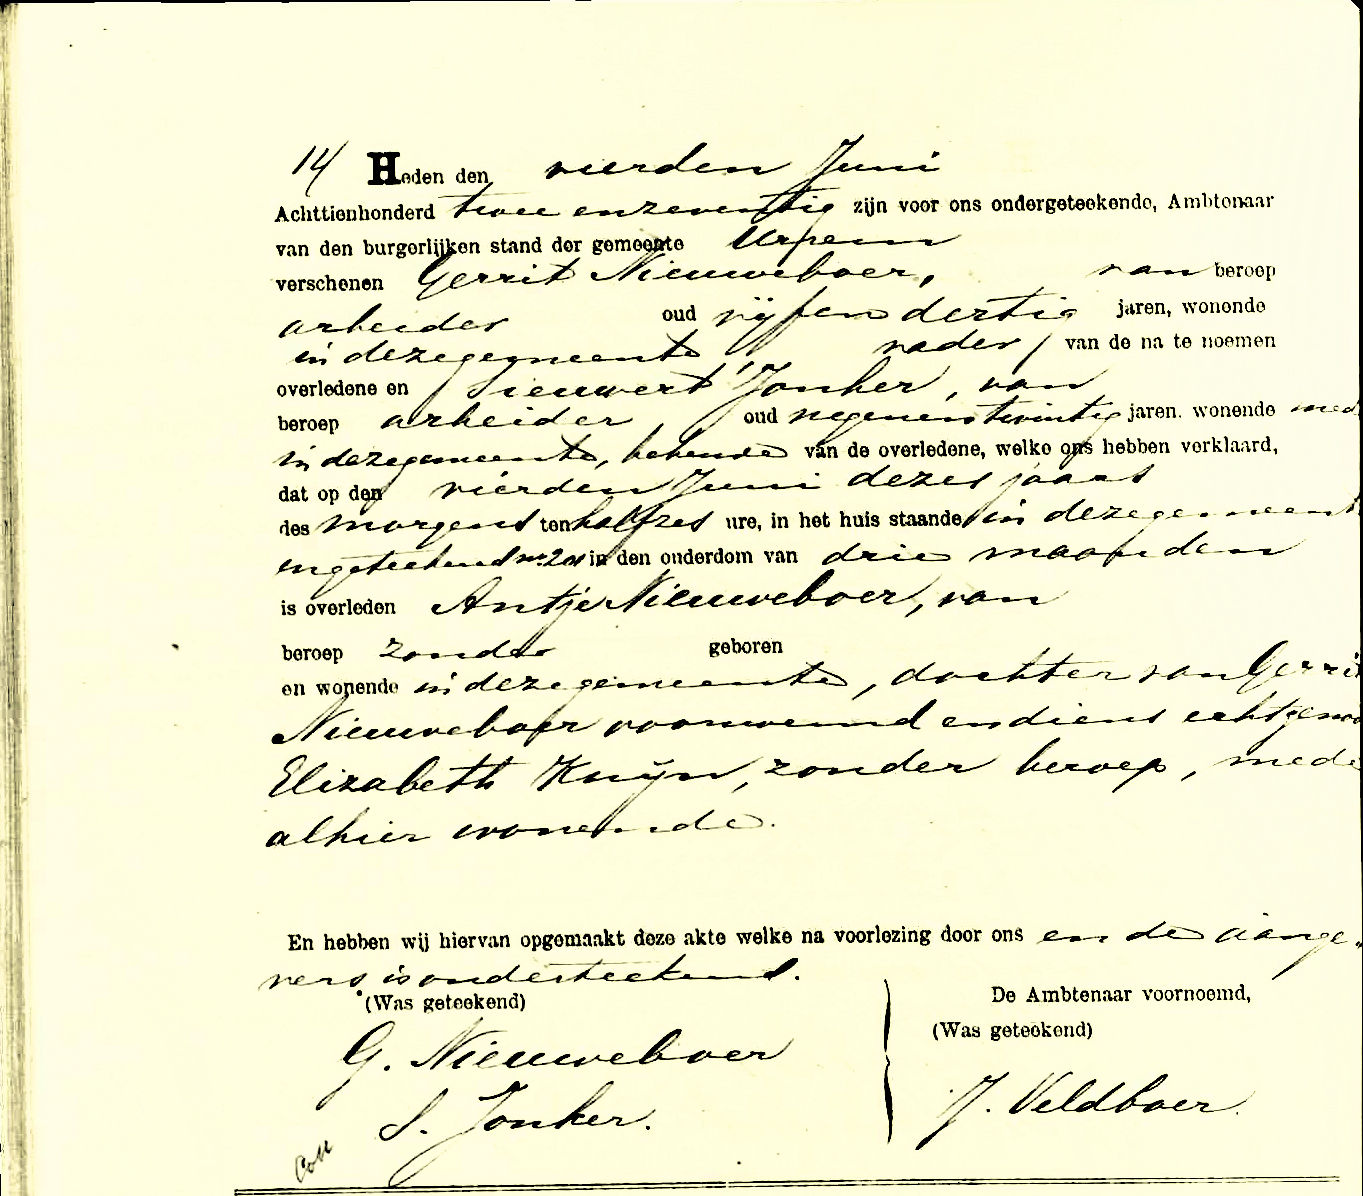 14 Heden den vierden Juni
Achttienhonderd twee en zeventig zijn voor ons ondergeteekende, Ambtenaar
van den burgerlijken stand der gemeente Ursem
verschenen Gerrit Nieuweboer, van beroep
arbeider oud vijf en dertig jaren, wonende
in deze gemeente, vader van de na te noemen
overledene en Sieuwert Jonker, van
beroep arbeider, oud negenentwintig jaren. wonende mede
in deze gemeente, bekende van de overledene, welke ons hebben verklaard,
dat op den vierden Juni dezes jaars
des morgens ten half zes ure, in het huis staande in deze gemeente
in den ouderdom van drie maanden
is overleden Antje Nieuweboer, van
beroep zonder geboren
en wonende in deze gemeente, dochter van Gerrit
Nieuweboer voornoemd en diens echtgenoo
Elizabeth Knijn, zonder beroep, mede
alhier wonende.
En hebben wij hiervan opgemaakt deze akte welke na voorlezing door ons en de aange-
vers is onderteekend.
(Was geteekend) De Ambtenaar voornoemd,
(Was geteekend)
G. Nieuweboer
S. Jonker. J. Veldboer.
Coll